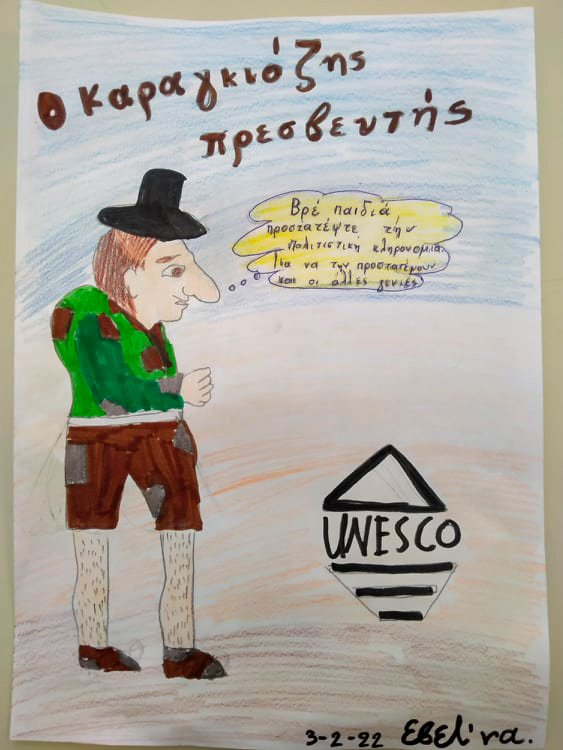 Ο καραγκιόζης
πρεσβευτής
Βρέ παιδιά
προστατέψτε τήν
πολιτιστική κληρονομια
Για να την προστατέψουν
και οι άλλες γενιές.
UNESCO
3-2-22 Εβελίνα.